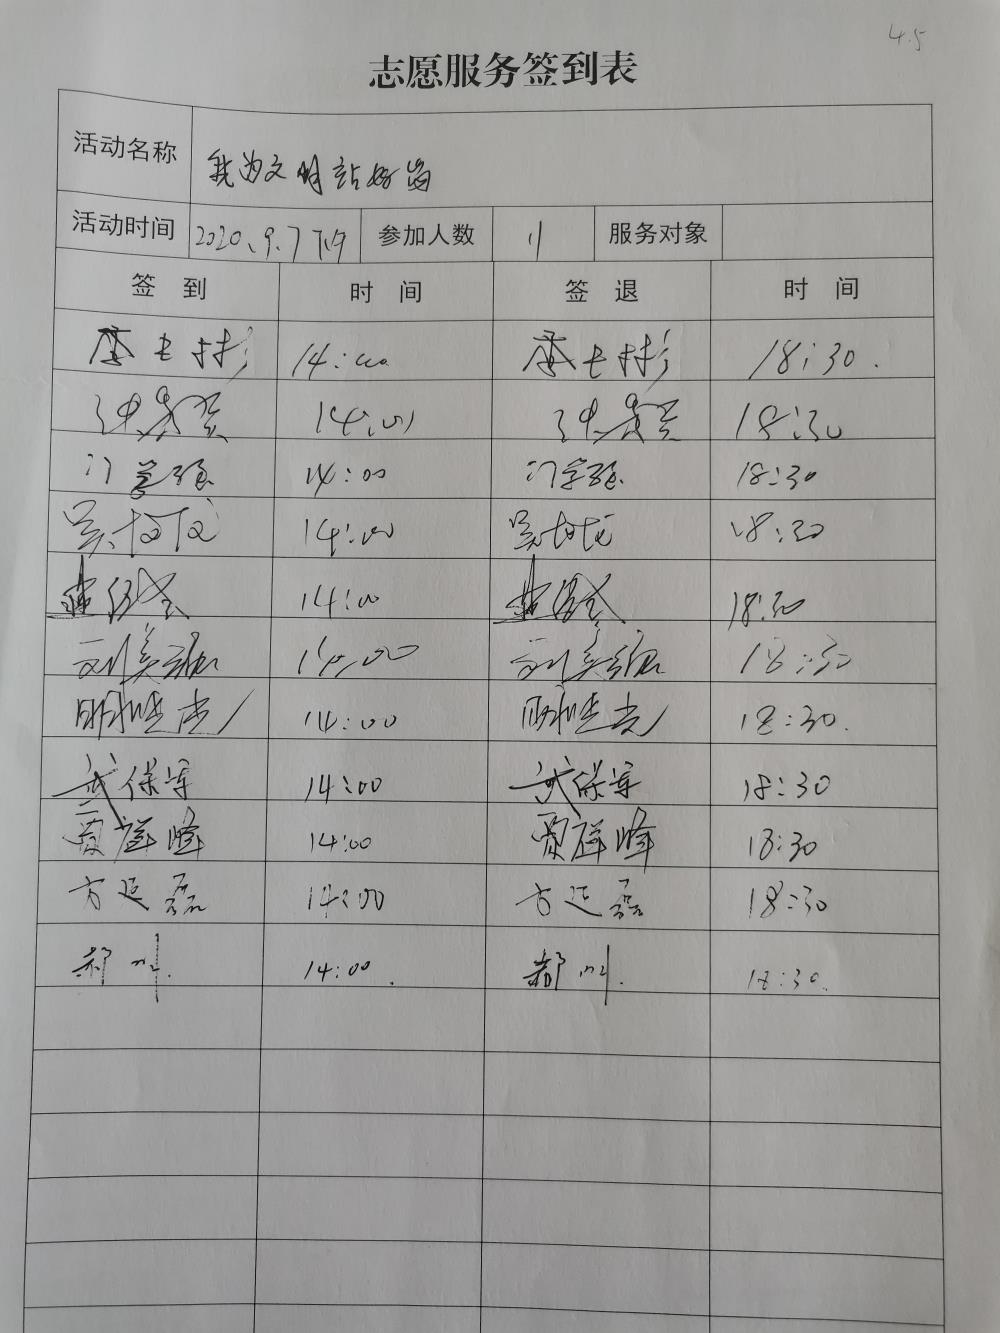 4.5
志愿服务签到表
活动名称 我为文明站好岗
活动时间 2020.9.7下午 参加人数 11 服务对象
签到 时间 签退 时间
14:00 18:30.
14:00 18:30
14:00 18:30
吴 14:00 吴 18:30
14:00 18:30
刘美 14:00 刘美 18:30
14:00 18:30.
武保军 14:00 武保军 18:30
贾祥峰 14:00 贾祥峰 18:30
方延磊 14:00 方延磊 18:30
郝叫. 14:00. 郝叫. 18:30.